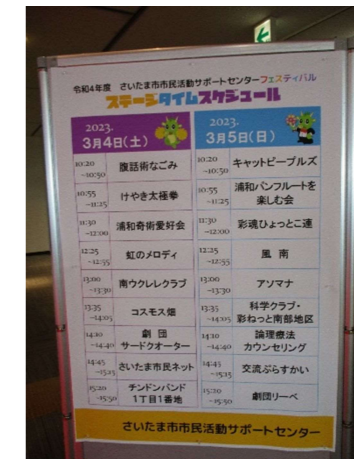 令和4年度 さいたま市市民活動サポートセンターフェスティバル
ステージタイムスケジュール
2023.
3月4日(土)
10:20
~10:50
腹話術なごみ
10:55
~11:25
けやき太極拳
11:30
~12:00
浦和奇術愛好会
12:25
~12:55
虹のメロディ
13:00
~13:30
南ウクレレクラブ
13:35
~14:05
コスモス畑
14:10
~14:40
劇団
サードクオーター
14:45
~15:15
さいたま市民ネット
15:20
~15:50
チンドンバンド
1丁目1番地
2023.
3月5日(日)
10:20
~10:50
キャットピープルズ
10:55
~11:25
浦和パンフルートを
楽しむ会
11:30
~12:00
彩魂ひょっとこ連
12:25
~12:55
風南
13:00
~13:30
アソマナ
13:35
~14:05
科学クラブ・
彩ねっと南部地区
14:10
~14:40
論理療法
カウンセリング
14:45
~15:15
交流ぷらすかい
15:20
~15:50
劇団リーベ
さいたま市市民活動サポートセンター